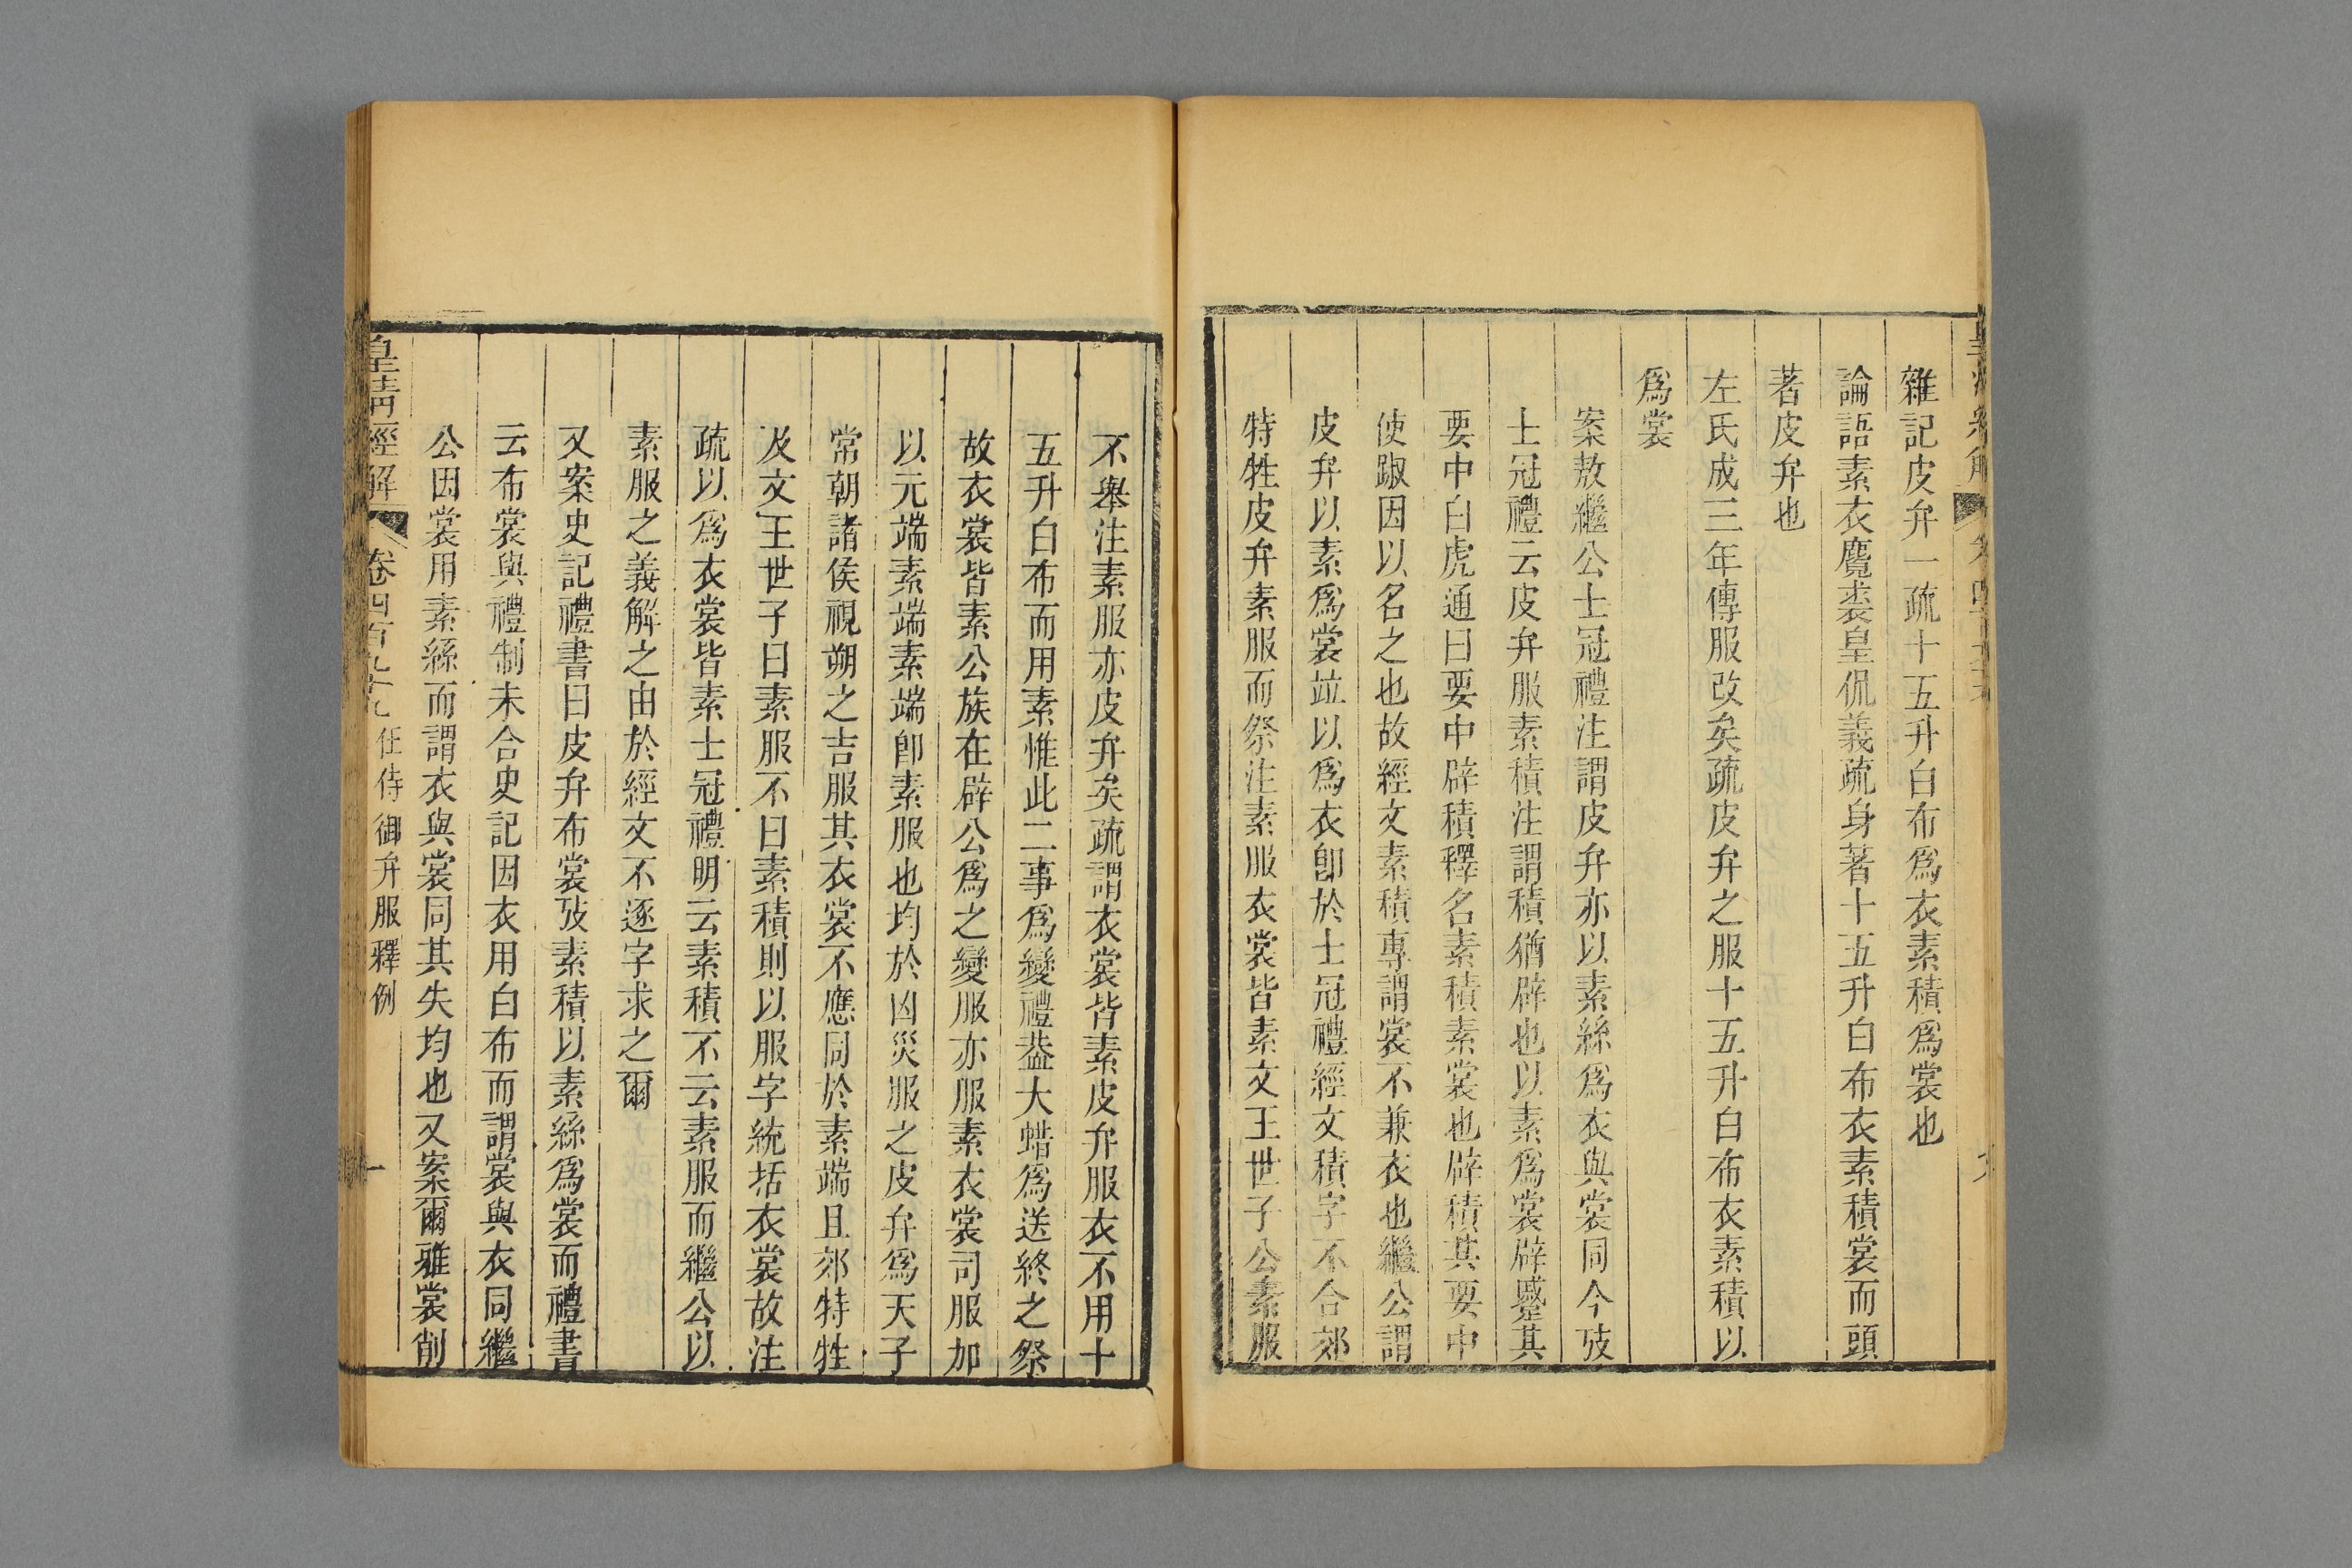 雜記皮弁一疏十五升白布爲衣素積爲裳也
論語素衣麑裘皇侃義疏身著十五升白布衣素積裳而頭
著皮弁也
左氏成三年傳服改矣疏皮弁之服十五升白布衣素積以
爲裳
案敖繼公士冠禮注謂皮弁亦以素絲爲衣與裳同今攷
士冠禮云皮弁服素積注謂積猶辟也以素爲裳辟蹙其
要中白虎通曰要中辟積釋名素積素裳也辟積其要中
使踧因以名之也故經文素積專謂裳不兼衣也繼公謂
皮弁以素爲裳竝以爲衣卽於士冠禮經文積字不合郊
特牲皮弁素服而祭注素服衣裳皆素文王世子公素服
不舉注素服亦皮弁矣疏謂衣裳皆素皮弁服衣不用十
五升白布而用素惟此二事爲變禮葢大蜡爲送終之祭
故衣裳皆素公族在辟公爲之變服亦服素衣裳司服加
以元端素端素端卽素服也均於凶災服之皮弁爲天子
常朝諸侯視朔之吉服其衣裳不應同於素端且郊特牲
及文王世子曰素服不曰素積則以服字統括衣裳故注
疏以爲衣裳皆素士冠禮明云素積不云素服而繼公以
素服之義解之由於經文不逐字求之爾
又案史記禮書曰皮弁布裳攷素積以素絲爲裳而禮書
云布裳與禮制未合史記因衣用白布而謂裳與衣同繼
公因裳用素絲而謂衣與裳同其失均也又案爾雅裳削
皇清經解 卷四百九十九 任侍御弁服釋例 一